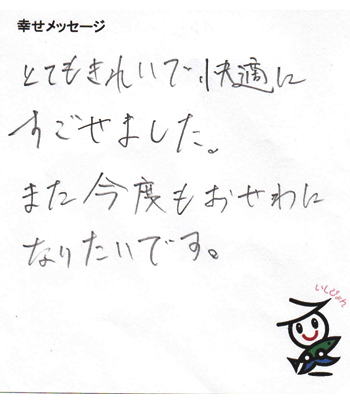 幸せメッセージ
とてもきれいで快適に
すごせました。
また今度もおせわに
なりたいです。
いしぴょん